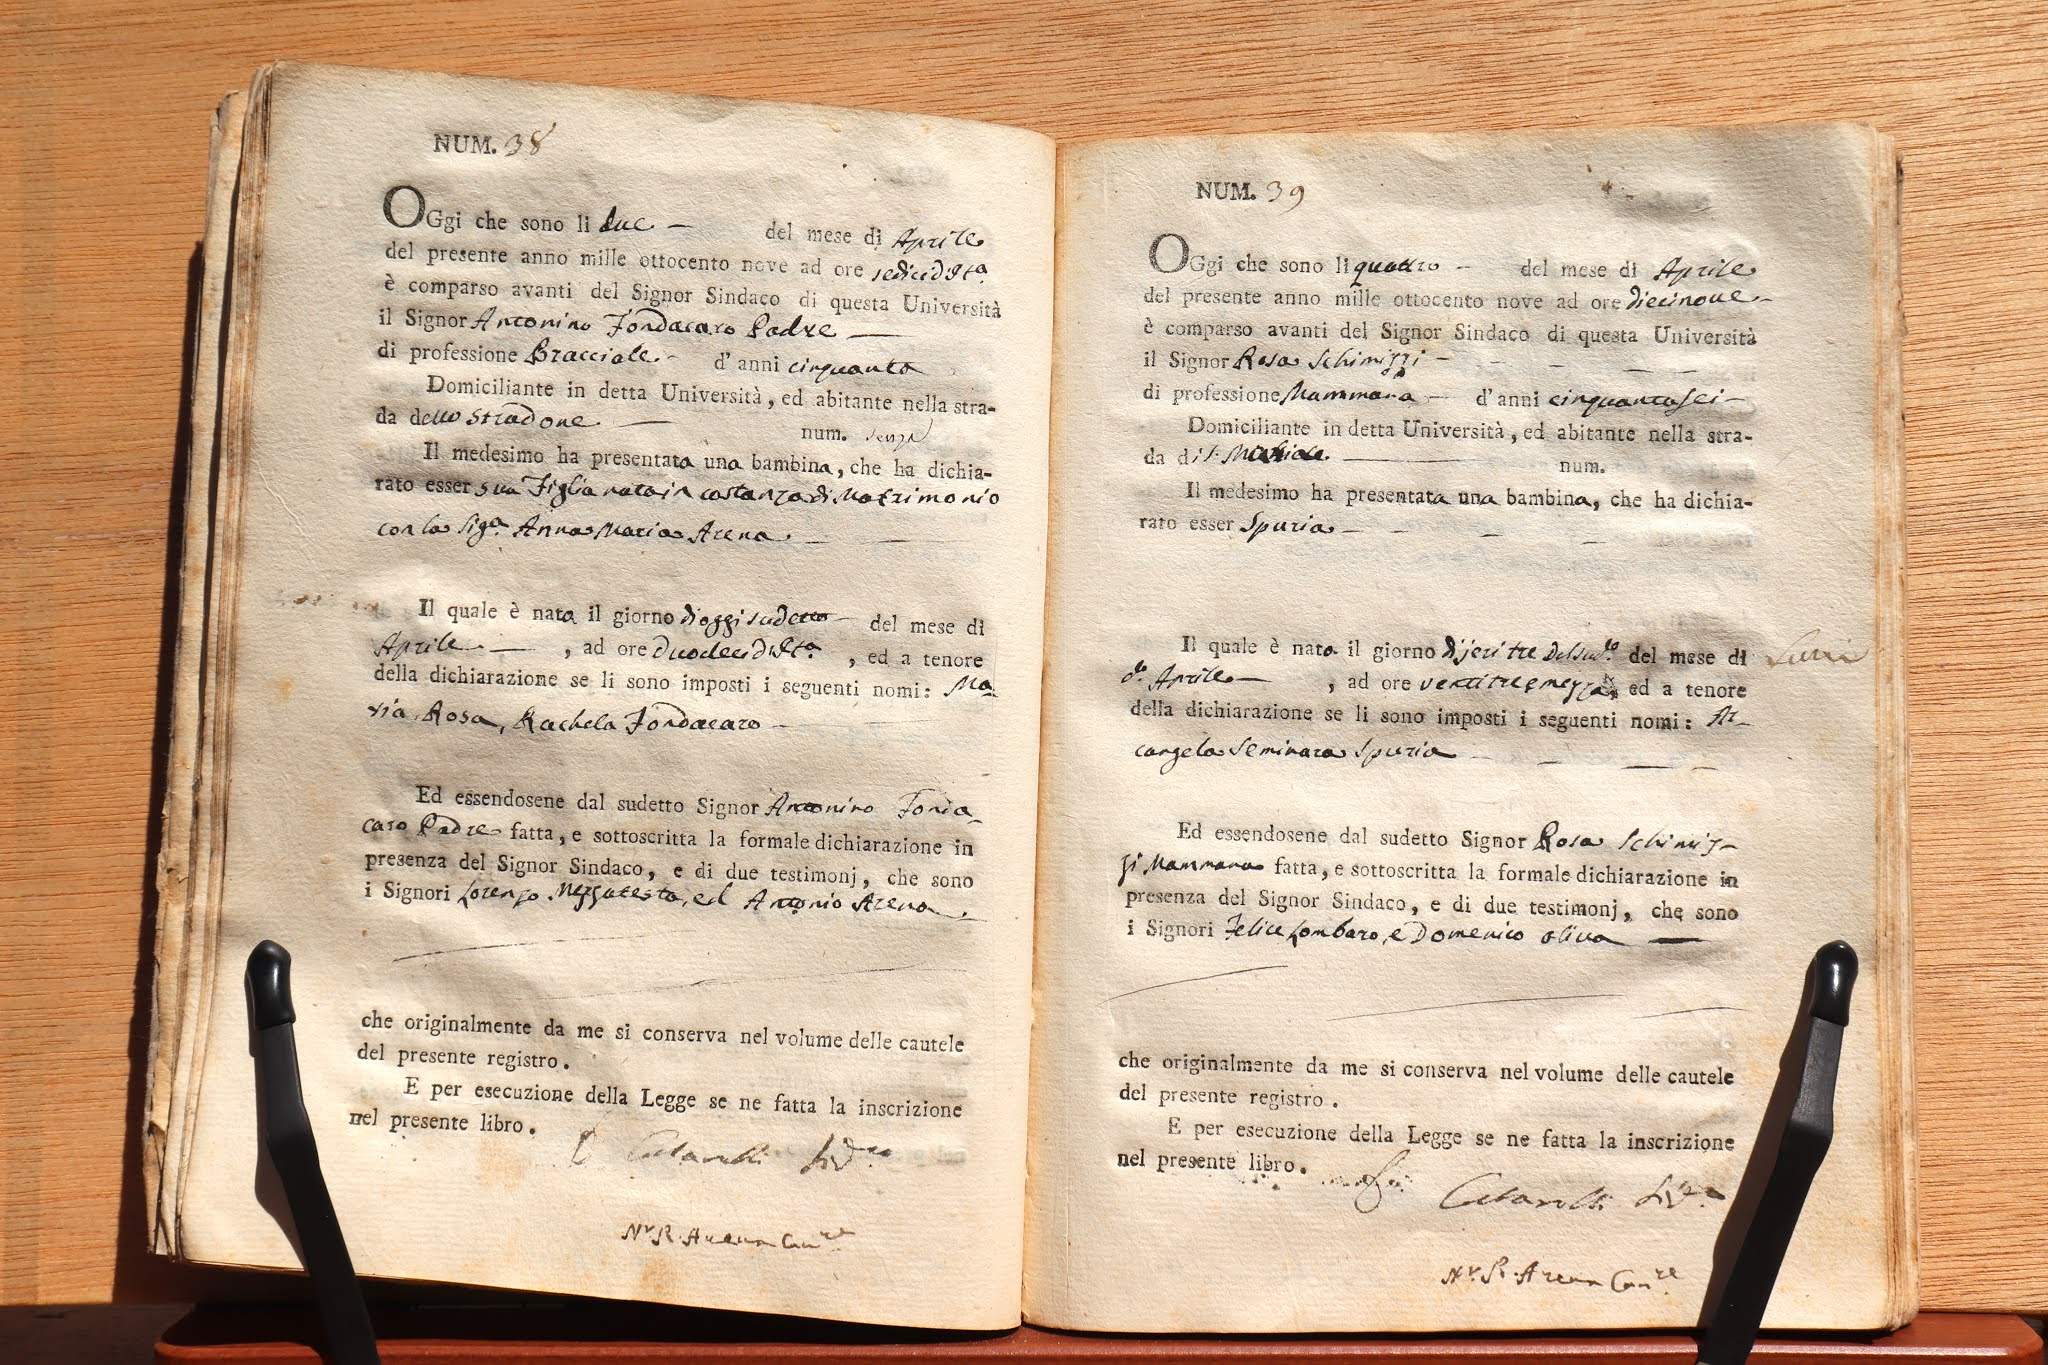 NUM. 38
OGgi che sono li due — del mese di Aprile
del presente anno mille ottocento nove ad ore sedici d'Ita.
è comparso avanti del Signor Sindaco di questa Università
il Signor Antonino Fondacaro Padre —
di professione Bracciale - d' anni cinquanta
Domiciliante in detta Università, ed abitante nella stra-
da dello stradone — num. senza
Il medesimo ha presentata una bambina, che ha dichia-
rato esser sua Figlia nata in costanza di Matrimonio
con la Siga. Anna Maria Arena. —
Il quale è nata il giorno di oggi sudetto — del mese di
Aprile. — , ad ore Duodeci d'Ita. , ed a tenore
della dichiarazione se li sono imposti i seguenti nomi: Ma-
ria, Rosa, Rachela Fondacaro —
Ed essendosene dal sudetto Signor Antonino Fonda-
caro Padre fatta, e sottoscritta la formale dichiarazione in
presenza del Signor Sindaco, e di due testimonj, che sono
i Signori Lorenzo Mezzatesta, ed Antonio Arena —.
che originalmente da me si conserva nel volume delle cautele
del presente registro.
E per esecuzione della Legge se ne fatta la inscrizione
nel presente libro.
Nr. R. Arena Canre
NUM. 39
OGgi che sono li quattro — del mese di Aprile
del presente anno mille ottocento nove ad ore diecinove —
è comparso avanti del Signor Sindaco di questa Università
il Signor Rosa Schimizzi —
di professione Mammana — d'anni cinquantasei —
Domiciliante in detta Università, ed abitante nella stra-
da di S. — num.
Il medesimo ha presentata una bambina, che ha dichia-
rato esser Spuria —
Il quale è nata il giorno di jeri tre del sudo. del mese di
do. Aprile — , ad ore ventitre e mezza, ed a tenore
della dichiarazione se li sono imposti i seguenti nomi: Ar-
cangela Seminara Spuria —
Ed essendosene dal sudetto Signor Rosa Schimiz-
zi Mammana fatta, e sottoscritta la formale dichiarazione in
presenza del Signor Sindaco, e di due testimonj, che sono
i Signori Felice Lombaro, e Domenico Oliva —
che originalmente da me si conserva nel volume delle cautele
del presente registro.
E per esecuzione della Legge se ne fatta la inscrizione
nel presente libro.
Nr. R. Arena Canre